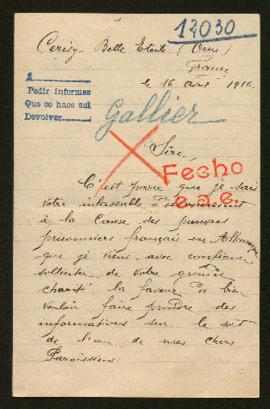 17030
Cerisy-Belle Etoile (Orne)
France
le 16 1916.
1
Pedir informes
Que se hace así
Devolver
Gallier
Sire,
Fecho
C'est parce que je sais
votre inlassable
à la cause des pauvres
prisonniers français en Allemagne
que je viens avec confiance
solliciter de votre grande
charité la faveur de bien
vouloir faire prendre des
informations sur le sort
de l'un de mes chers
Paroissiens